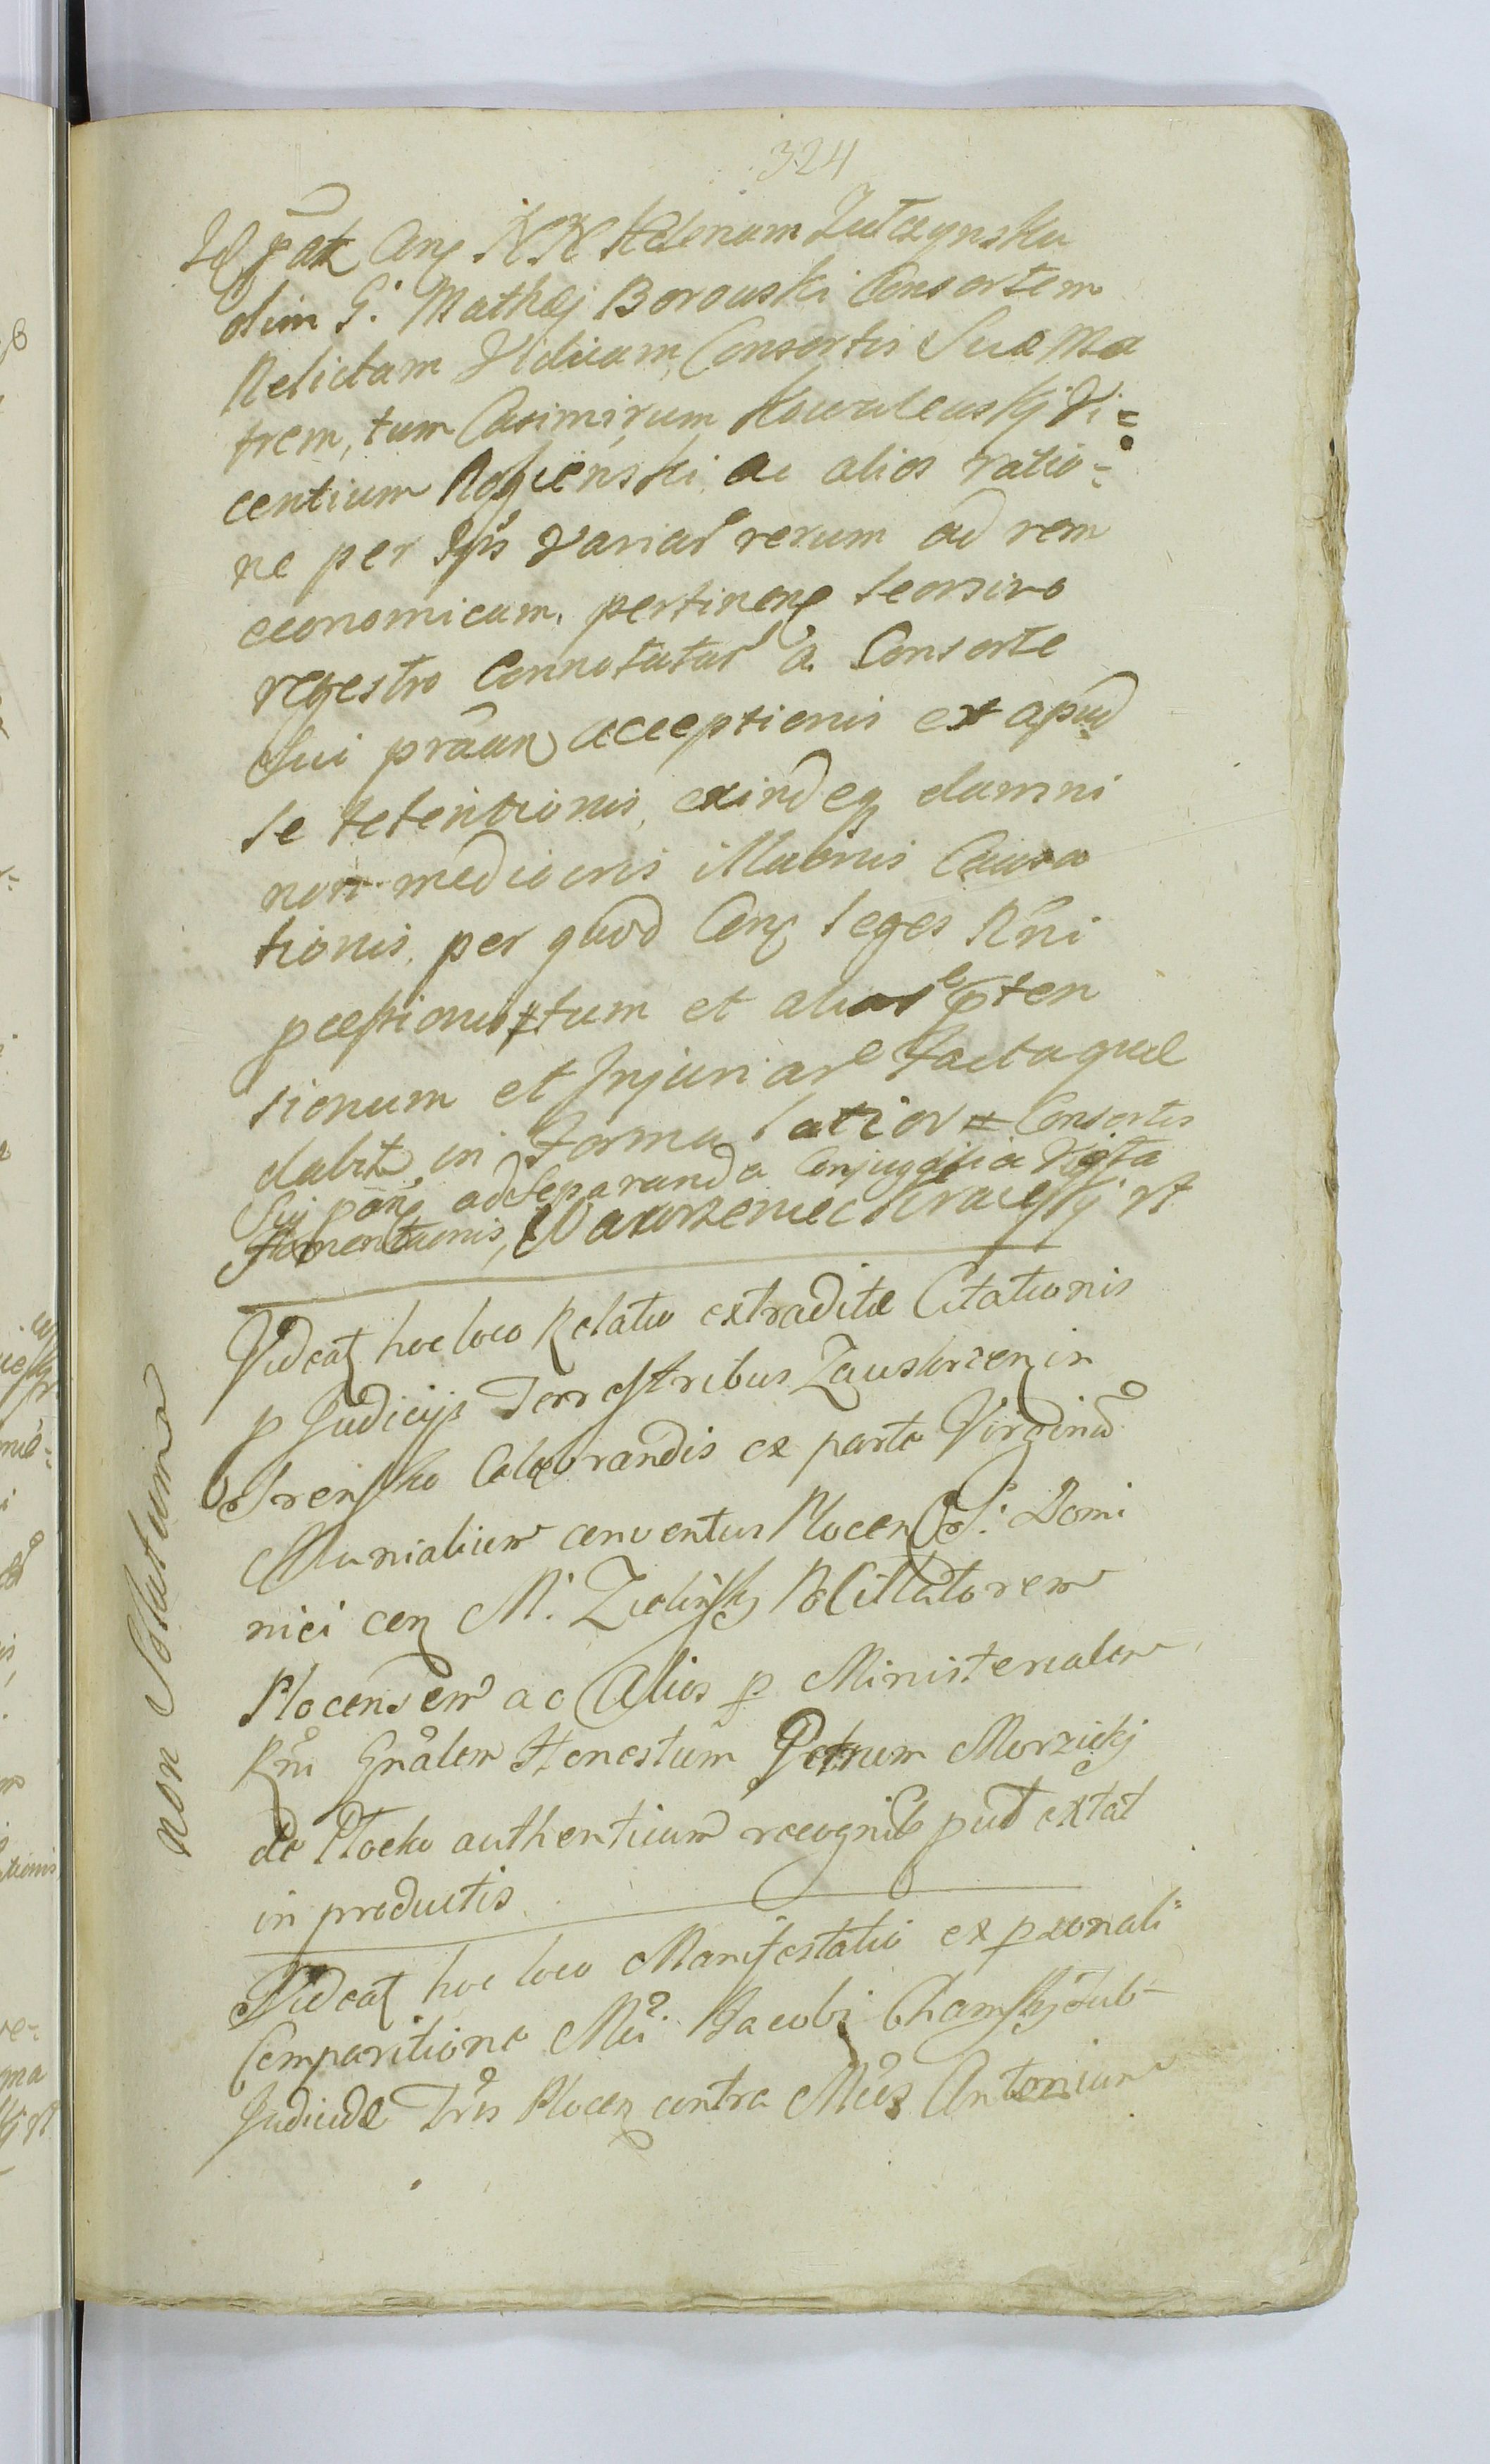 324
Id pat Con NN Helenam Zutczynska
olim G. Mathej Borouski Consortem
Relictam Viduam, Consortis Suae Ma
trem, tum Casimirum Kowaleuskj Vi=
centium Rogienski ac alios ratio=
ne per Ips variar rerum ad rem
economicam pertinen seorsivo
regestro Connotatar a Consorte
Sui acceptionis et apud
se retentionis, exindeq damni
non mediocris illationis Causa
tionis, per quod Con leges Rni
tum et aliar pten
sionum et Injuriar facta quae
dabit in forma latior # Consortis
Sui ad Separanda
Wawrzeniec rt
Videat hoc loco Relatio extraditae Citationis
p Judicijs Terrestribus Zauskrzen in
Strensko Celebrandis ex parte Virginu
Monialium conventus Plocen S. Domi
nici con M. Zielinskj
Plocensem ac Alios p Ministerialem
Rni Gnalem Honestum Petrum Morzickj
de Plocko authenticum recognit put extat
in productis
Videat hoc loco Manifestatio ex psonali
Comparitione Mci Jacobi Chamskj Sub-
Judicide Tris Plocen contra Mcos Antonium
non Solutum